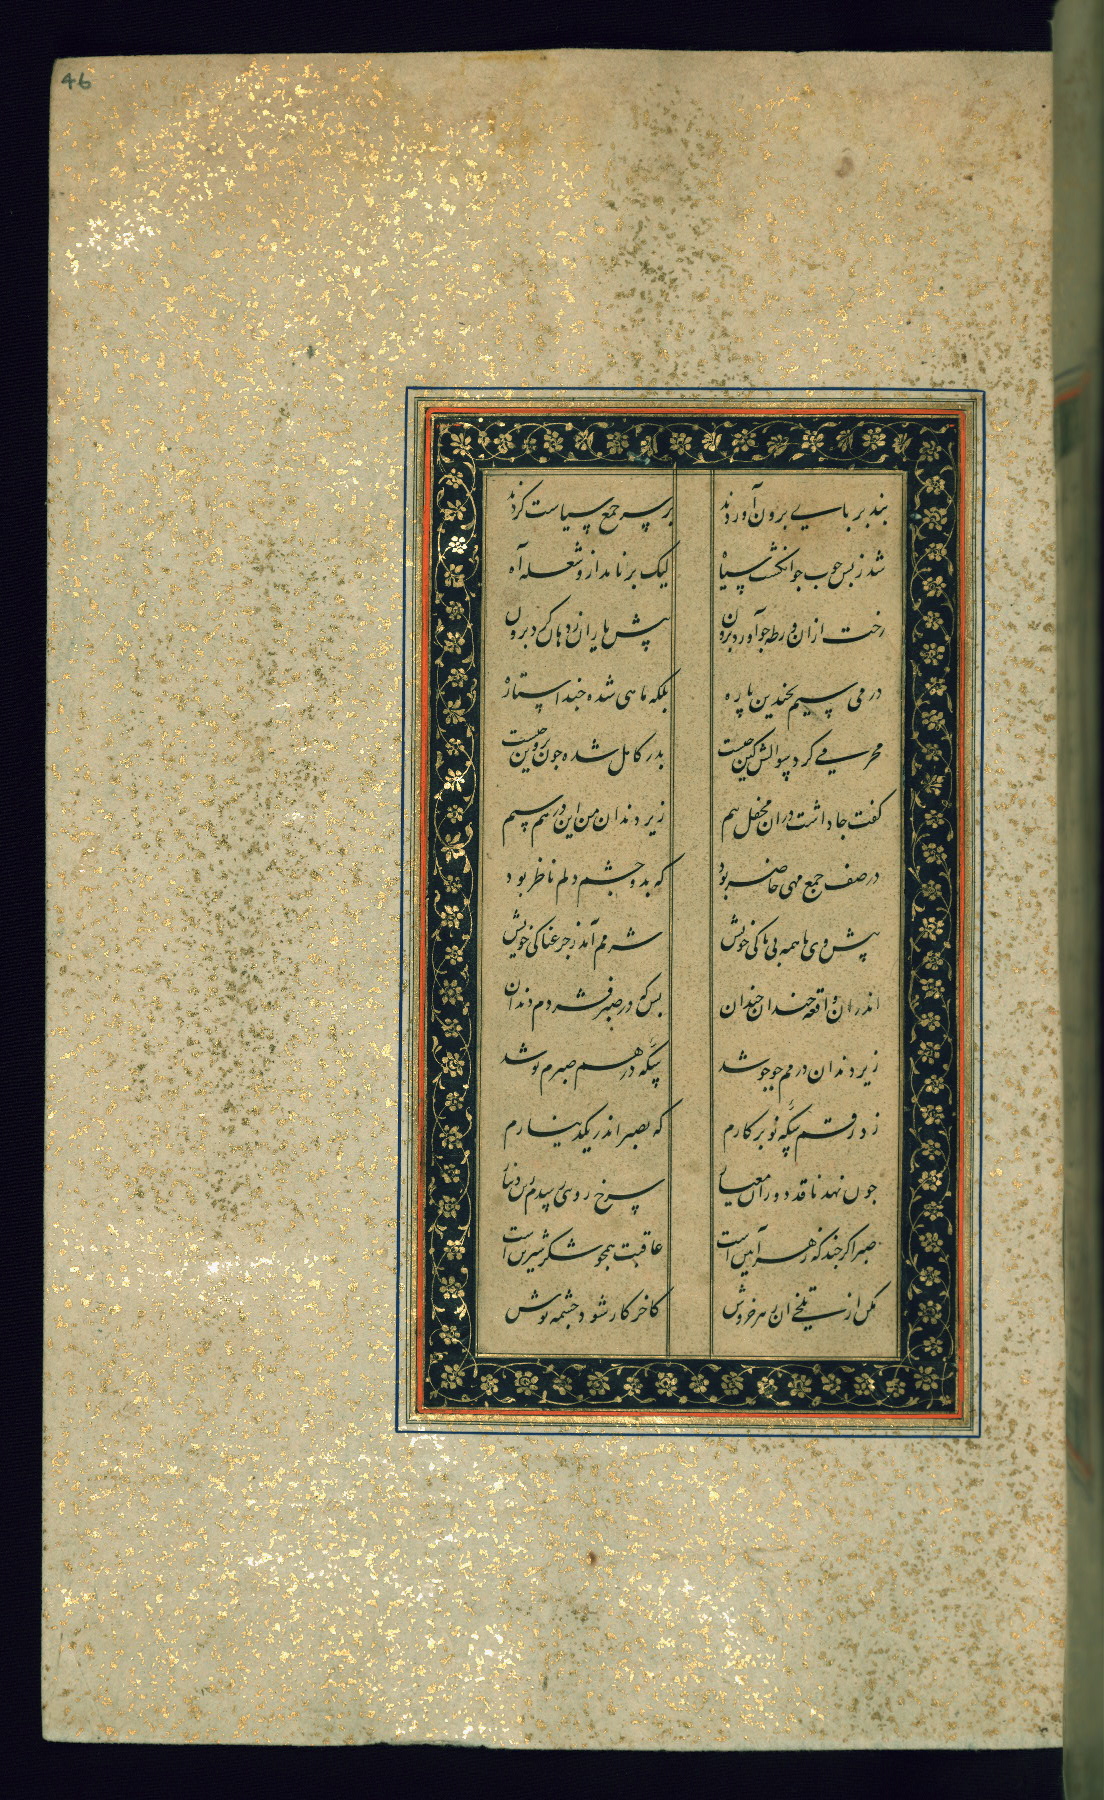 46
بند بر پاسے برون آوردند بر سر جمع سیاست کردند
شد ز بس چوب چو انگشت سیاه لیک بر نامد از و شعله آه
رخت ازان ورطه چو آورد برون پیش یاران ز دهان کرد برون
درمی سیم بچندین پاره بلکه ماهی شده چند استاره
محرمے کرد سوالش کین چیست بدر کامل شده چون پروین چیست
گفت جا داشت دران محفل هم زیر دندان من این درهم سیم
در صف جمع مهی حاضر بود که بدو چشم دلم ناظر بود
پیش وی با همه بی باکی خویش شرمم آمد ز جزعناکی خویش
اندران واقعه خندان خندان بس که در صبر فشردم دندان
زیر دندان درمم جو جو شد سکّه درهم صبرم نو شد
زد رقم سکّه نو بر کارم که بصبر اندر یکدینارم
چون نهد ناقد دوران معیار سرخ رویی رسدم زین دینار
صبر اگر چند که زهر آیین است عاقبت همچو شکر شیرین است
مکن از تلخی ان زهر خروش کاخر کار شود چشمه نوش